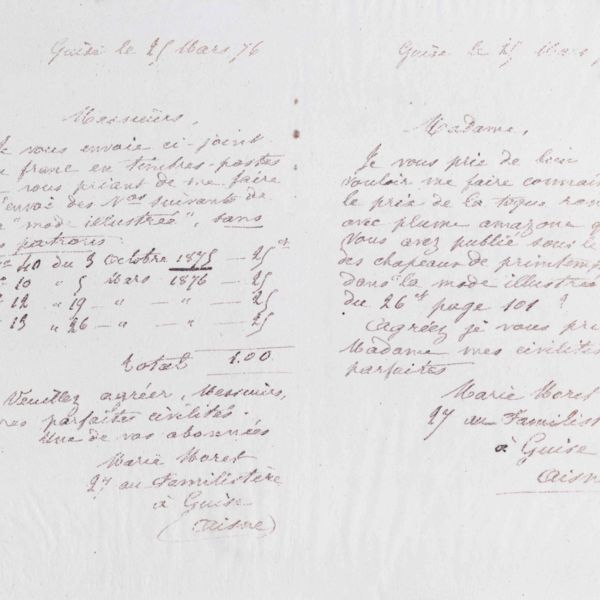 Guise le 25 Mars 76
Messieurs,
Je vous envoie ci-joint
franc en timbres-postes
vous priant de me faire
l'envoi des Nos suivants de
"mode illustrée", sans
patrons.
40 du 3 Octobre 1875 — 25 ct
10 " 5 Mars 1876 — 25
12 " 19 — " — " — 25
13 " 26 — " — " — 25
Total 1.00
Veuillez agréer, Messieurs,
mes parfaites civilités.
Une de vos abonnées
Marie Moret
27 au Familistère
à Guise
(Aisne)
Guise le 25 Mars
Madame,
Je vous prie de bien
vouloir me faire connaî
le prix de la toque ron
avec plume amazone q
vous avez publié sous le
des chapeaux de printemps
dans "la mode illustrée
du 26 ct page 101 ?
Agréez je vous pri
Madame mes civilités
parfaites
Marie Moret
27 au Familist
à Guise
Aisn